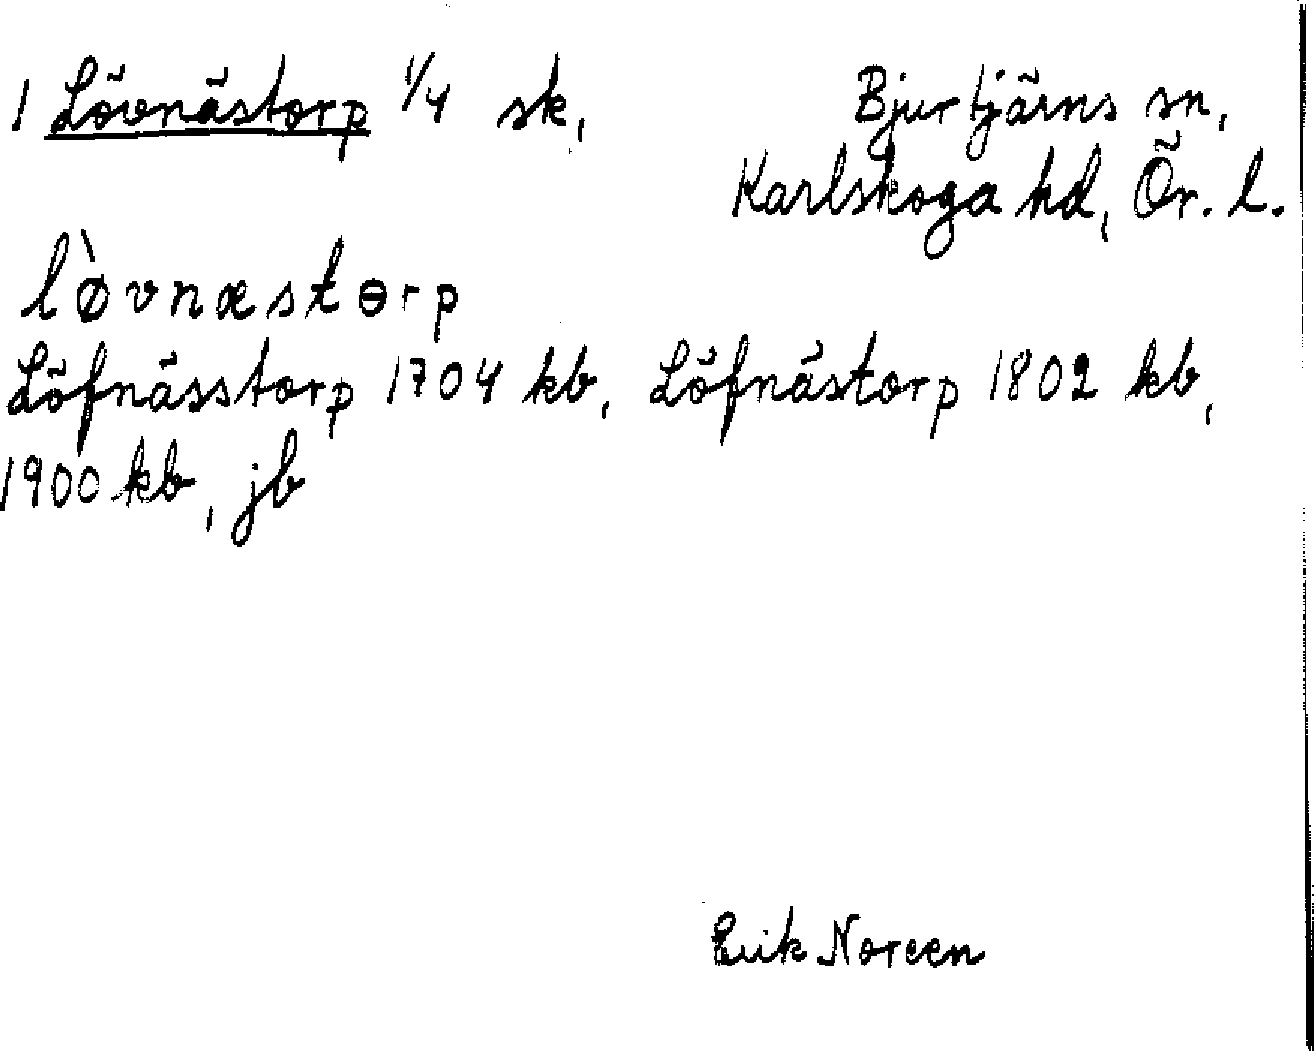 1 Lövnästorp 1/4 sk, Bjurtjärns sn,
Karlskoga hd, Ör. l.
lø̀vnæstɵrp
Löfnässtorp 1704 kb, Löfnästorp 1802 kb,
1900 kb, jb
Erik Noreen